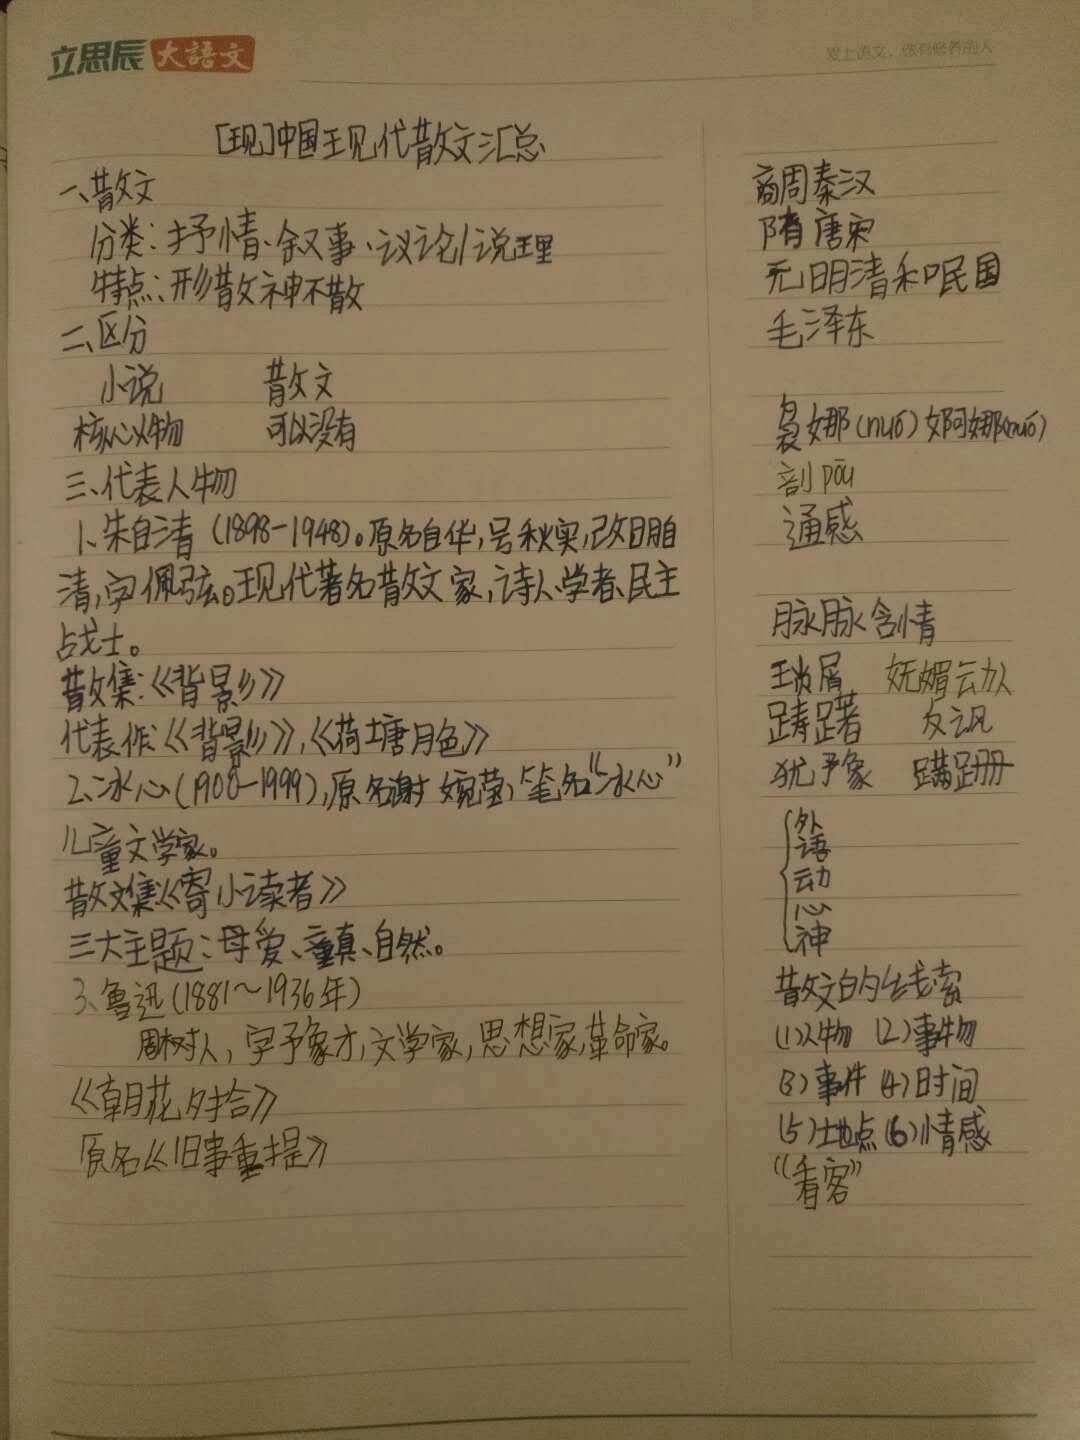 立思辰大語文
爱上语文，做有修养的人
[现]中国现代散文汇总
一、散文
分类：抒情、叙事、议论/说理
特点：形散神不散
二、区分
小说 散文
核心人物 可以没有
三、代表人物
1、朱自清（1898-1948）。原名自华，号秋实，改名自
清，字佩弦。现代著名散文家，诗人、学者、民主
战士。
散文集：《背景》
代表作：《背影》，《荷塘月色》
2、冰心（1900-1999），原名谢婉莹，笔名“冰心”
儿童文学家。
散文集《寄小读者》
三大主题：母爱、童真、自然。
3、鲁迅（1881～1936年）
周树人，字予象才，文学家，思想家，革命家。
《朝花夕拾》
原名《旧事重提》
商周秦汉
隋唐宋
元明清和民国
毛泽东
袅娜（nuó）婀娜（nuó）
剖pōu
通感
脉脉含情
琐屑 妩媚动人
踌躇 反讽
犹予象 蹒跚
外
语
动
心
神
散文的线索
（1）人物（2）事物
（3）事件（4）时间
（5）地点（6）情感
“看客”